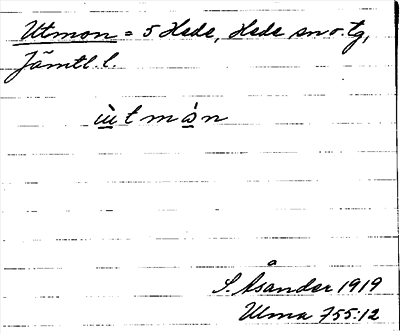 Utmon = 5 Hede, Hede sn o. tg,
Jämtl. l.
ùtmán
S. Åsander 1919
Ulma 755:12